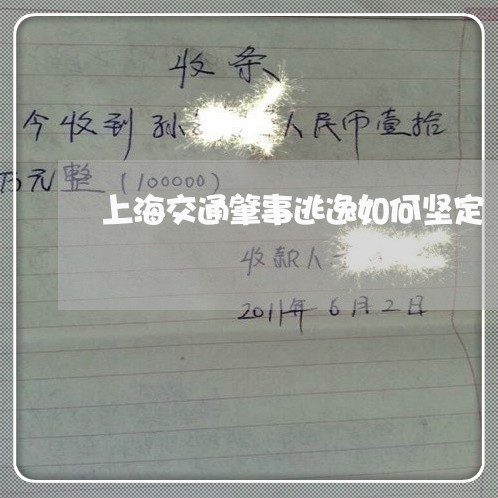 收条
今收到孙 人民币壹拾
万元整(100000)
上海交通肇事逃逸如何坚定
收款人
2011年6月2日